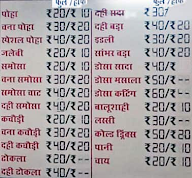 फुल / हाफ
फुल / हाफ
पोहा ₹20/₹10
चना पोहा ₹30/₹20
स्पेशल पोहा ₹30/₹20
जलेबी ₹20/₹10
समोसा ₹20/₹10
चना समोसा ₹30/₹20
समोसा चाट ₹40/₹20
दही समोसा ₹40/₹20
कचौड़ी ₹20/₹10
चना कचौड़ी ₹30/₹20
दही कचौड़ी ₹40/₹20
ढोकला ₹20/₹--
दही ढोकला ₹30/₹--
दही सादा ₹30/
दही बड़ा ₹40/₹20
इडली ₹30/₹20
सांभर बड़ा ₹40/₹20
डोसा सादा ₹40/
डोसा मसाला ₹50/₹--
डोसा कटिंग ₹60/₹--
बालूशाही ₹20/₹--
लस्सी ₹30/₹--
कोल्ड ड्रिंक्स ₹50/₹20
पानी ₹20/₹10
चाय ₹20/₹10